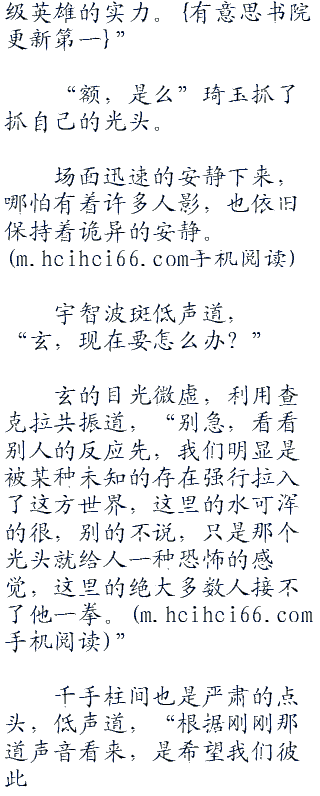 级英雄的实力。{有意思书院
更新第一}”
“额，是么”琦玉抓了
抓自己的光头。
场面迅速的安静下来，
哪怕有着许多人影，也依旧
保持着诡异的安静。
(m.hcihci66.com手机阅读)
宇智波斑低声道，
“玄，现在要怎么办？”
玄的目光微虚，利用查
克拉共振道，“别急，看看
别人的反应先，我们明显是
被某种未知的存在强行拉入
了这方世界，这里的水可浑
的很，别的不说，只是那个
光头就给人一种恐怖的感
觉，这里的绝大多数人接不
了他一拳。(m.hcihci66.com
手机阅读)”
千手柱间也是严肃的点
头，低声道，“根据刚刚那
道声音看来，是希望我们彼
此